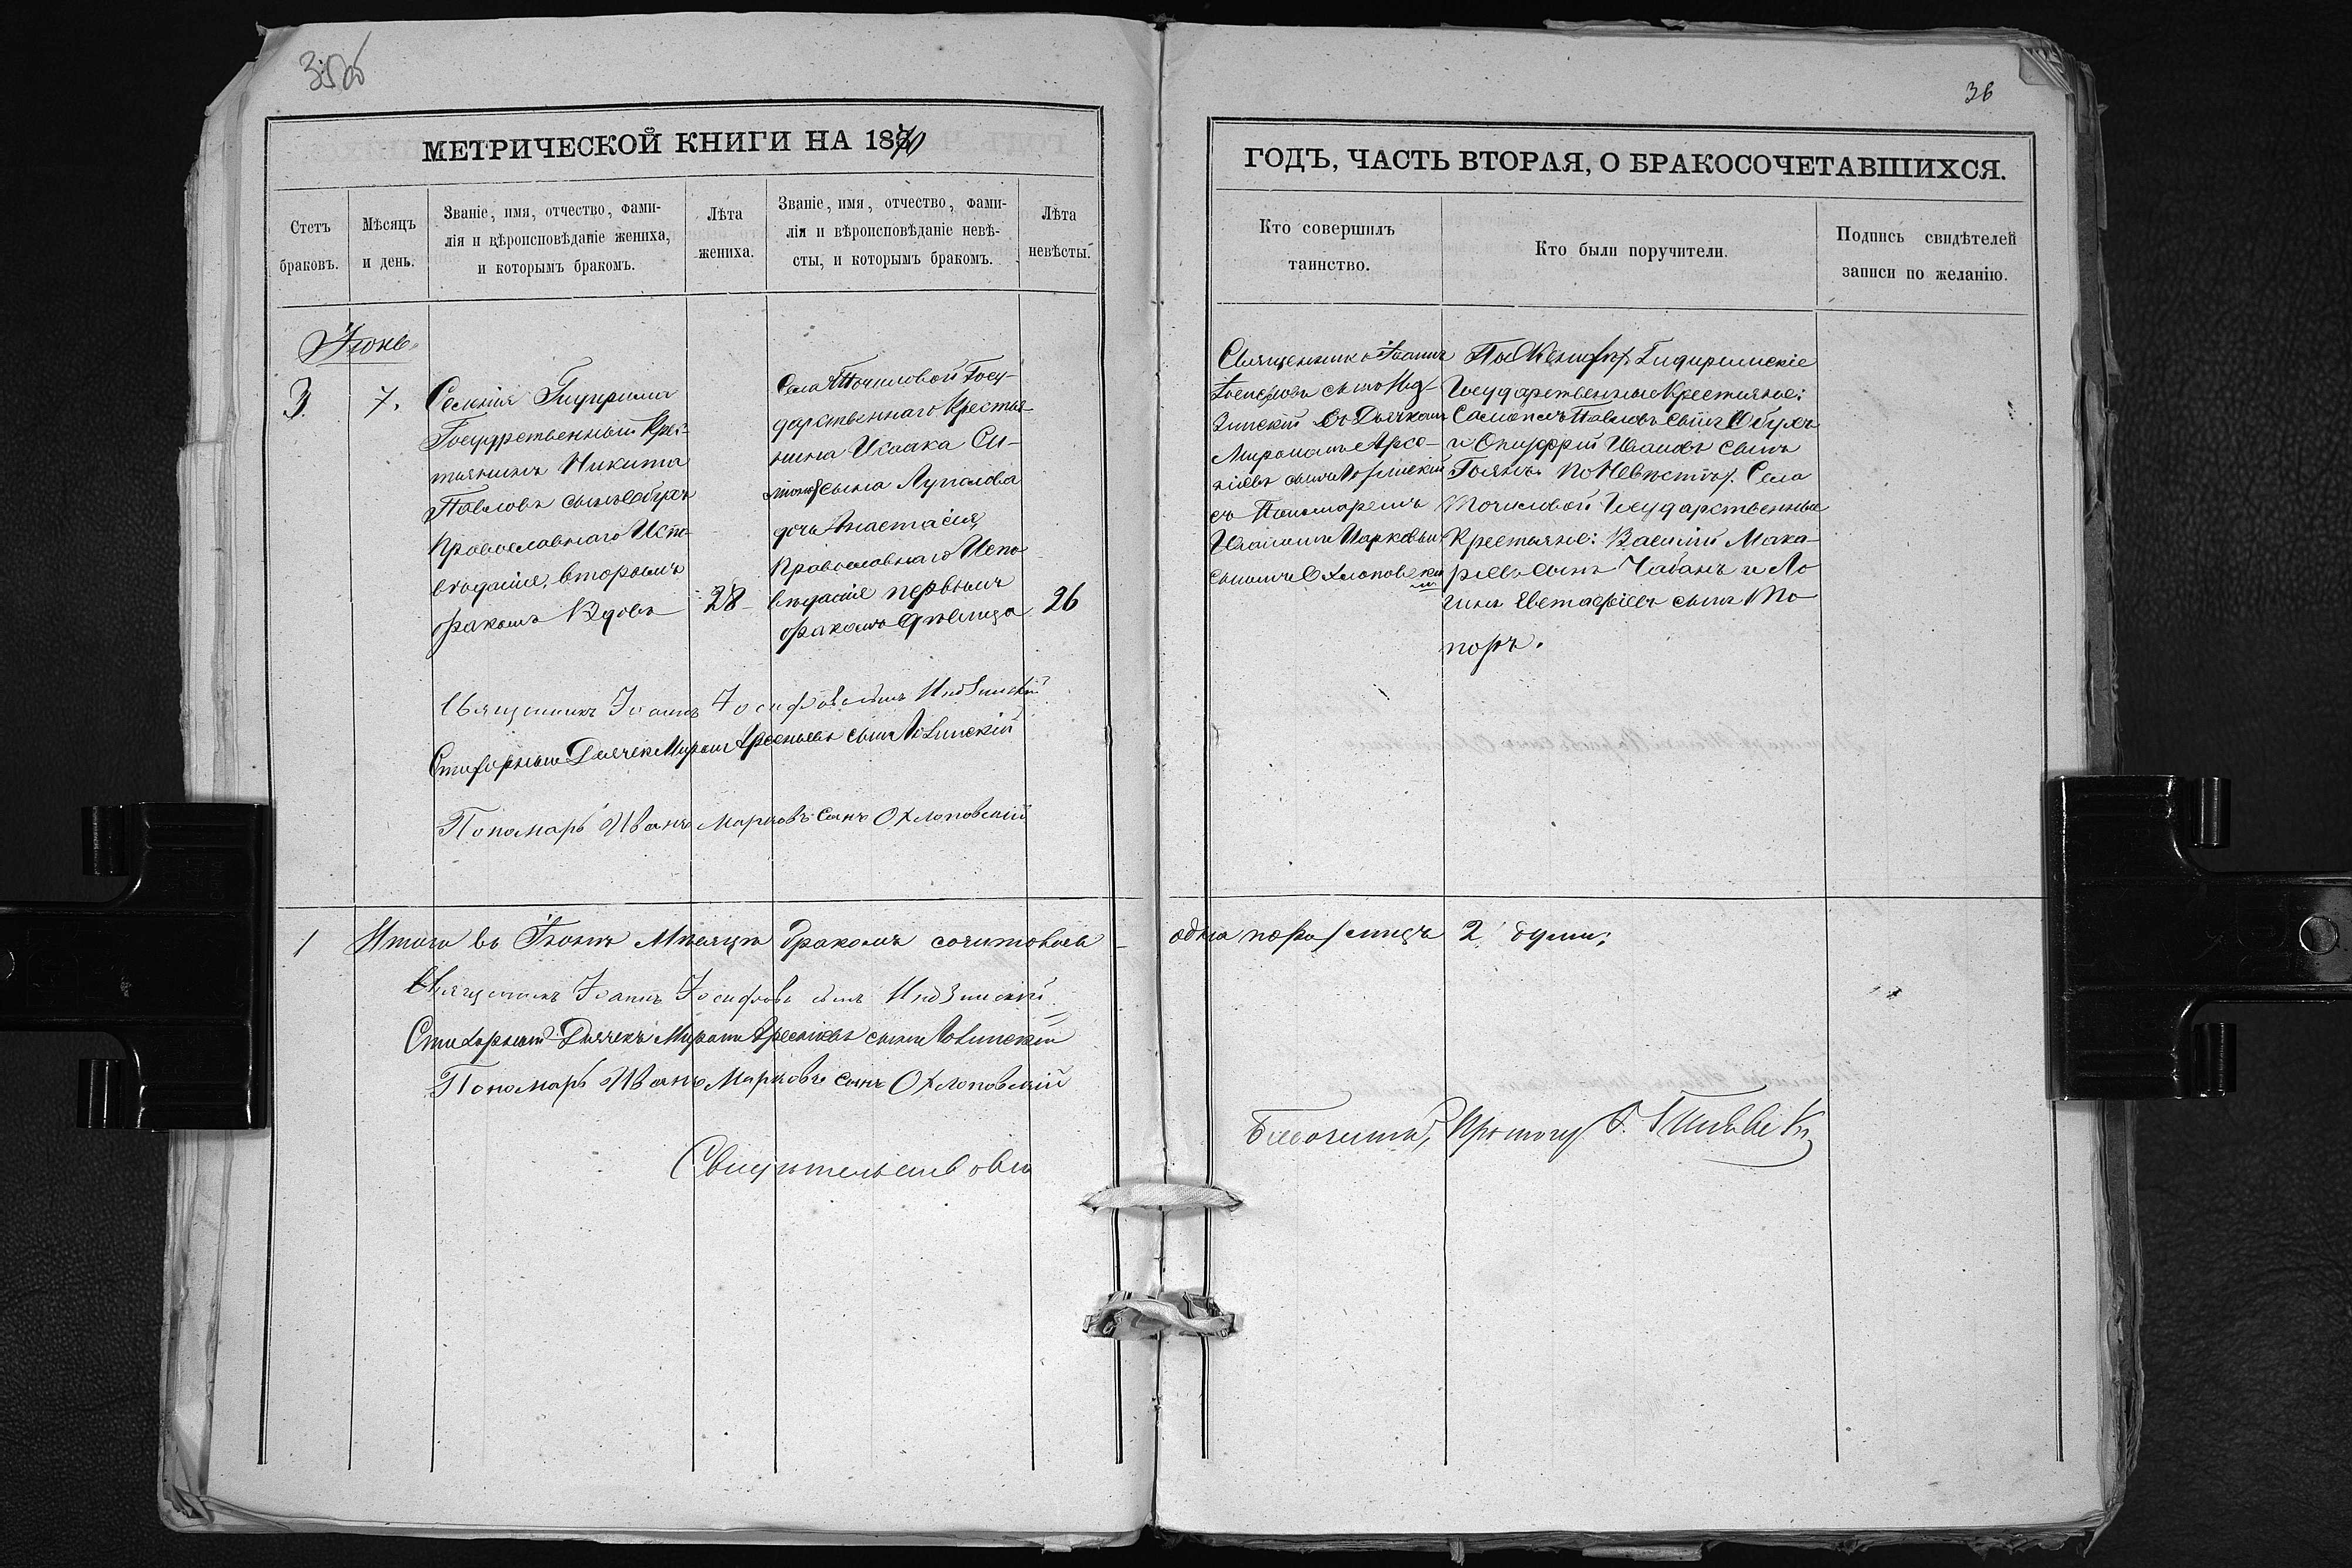 35об
МЕТРИЧЕСКОЙ КНИГИ НА 1870
Стетъ браковъ.
Мѣсяцъ и день.
Званіе, имя, отчество, фами-
лія и вѣроисповѣданіе жениха,
и которымъ бракомъ.
Лѣта жениха.
Званіе, имя, отчество, фами-
лія и вѣроисповѣданіе невѣ-
сты, и которымъ бракомъ.
Лѣта невѣсты.
Іюнь
3.
7.
Селенія Гидирима
Государственный Крес-
тьянинъ Никита
Павловъ сынъ Обухъ
Православнаго Испо-
вѣданія, вторымъ
бракомъ Вдовъ
28
Села Точиловой Госу-
дарственнаго Крестья-
нина Исаака Си-
сына Лупалова
дочь Анастасія,
Православнаго Испо
вѣданія первымъ
бракомъ дѣвица
26
Священникъ Іоаннъ Іосифовъ сынъ
Стихарный Дьячекъ Миронъ Арсеньевъ сынъ Лозинскій
Пономарь Иванъ Марковъ сынъ Охлоповский
1 Итого въ Іюнѣ Мѣсяцѣ бракомъ сочитовася
Священникъ Іоаннъ Іосифовъ сынъ
Стихарный Дьячекъ Миронъ Арсеніевъ сынъ Лозинскій
Пономарь Иванъ Марковъ сынъ Охлоповский
36
ГОДЪ, ЧАСТЬ ВТОРАЯ, О БРАКОСОЧЕТАВШИХСЯ.
Кто совершилъ
таинство.
Кто были поручители.
Подпись свидѣтелей
записи по желанію.
Священникъ Іоаннъ
Іосифовъ сынъ
съ Дьячкомъ
Мирономъ Арсе-
ніевъ сынъ Лозинскій
съ Пономаремъ
Иваномъ Марковъ
сыномъ Охлоповскій
По Женихѣ Гидиримскіе
Государственные Крестьяне:
Самоилъ Павловъ сынъ Обухъ
и Онуфрій Ивановъ сынъ
По Невѣстѣ. Села
Точиловой Государственные
Крестьяне: Василій Мака-
ріевъ сынъ Чабанъ и Ло
гинъ Евстафіевъ сынъ То
поръ.
одна пара/лицъ 2 души;
Свидѣтельствовалъ Благочинный, Протоіер.